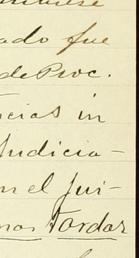 ado fue
de Proc.
cias in
Judicia-
en el jui-
mas Tardar